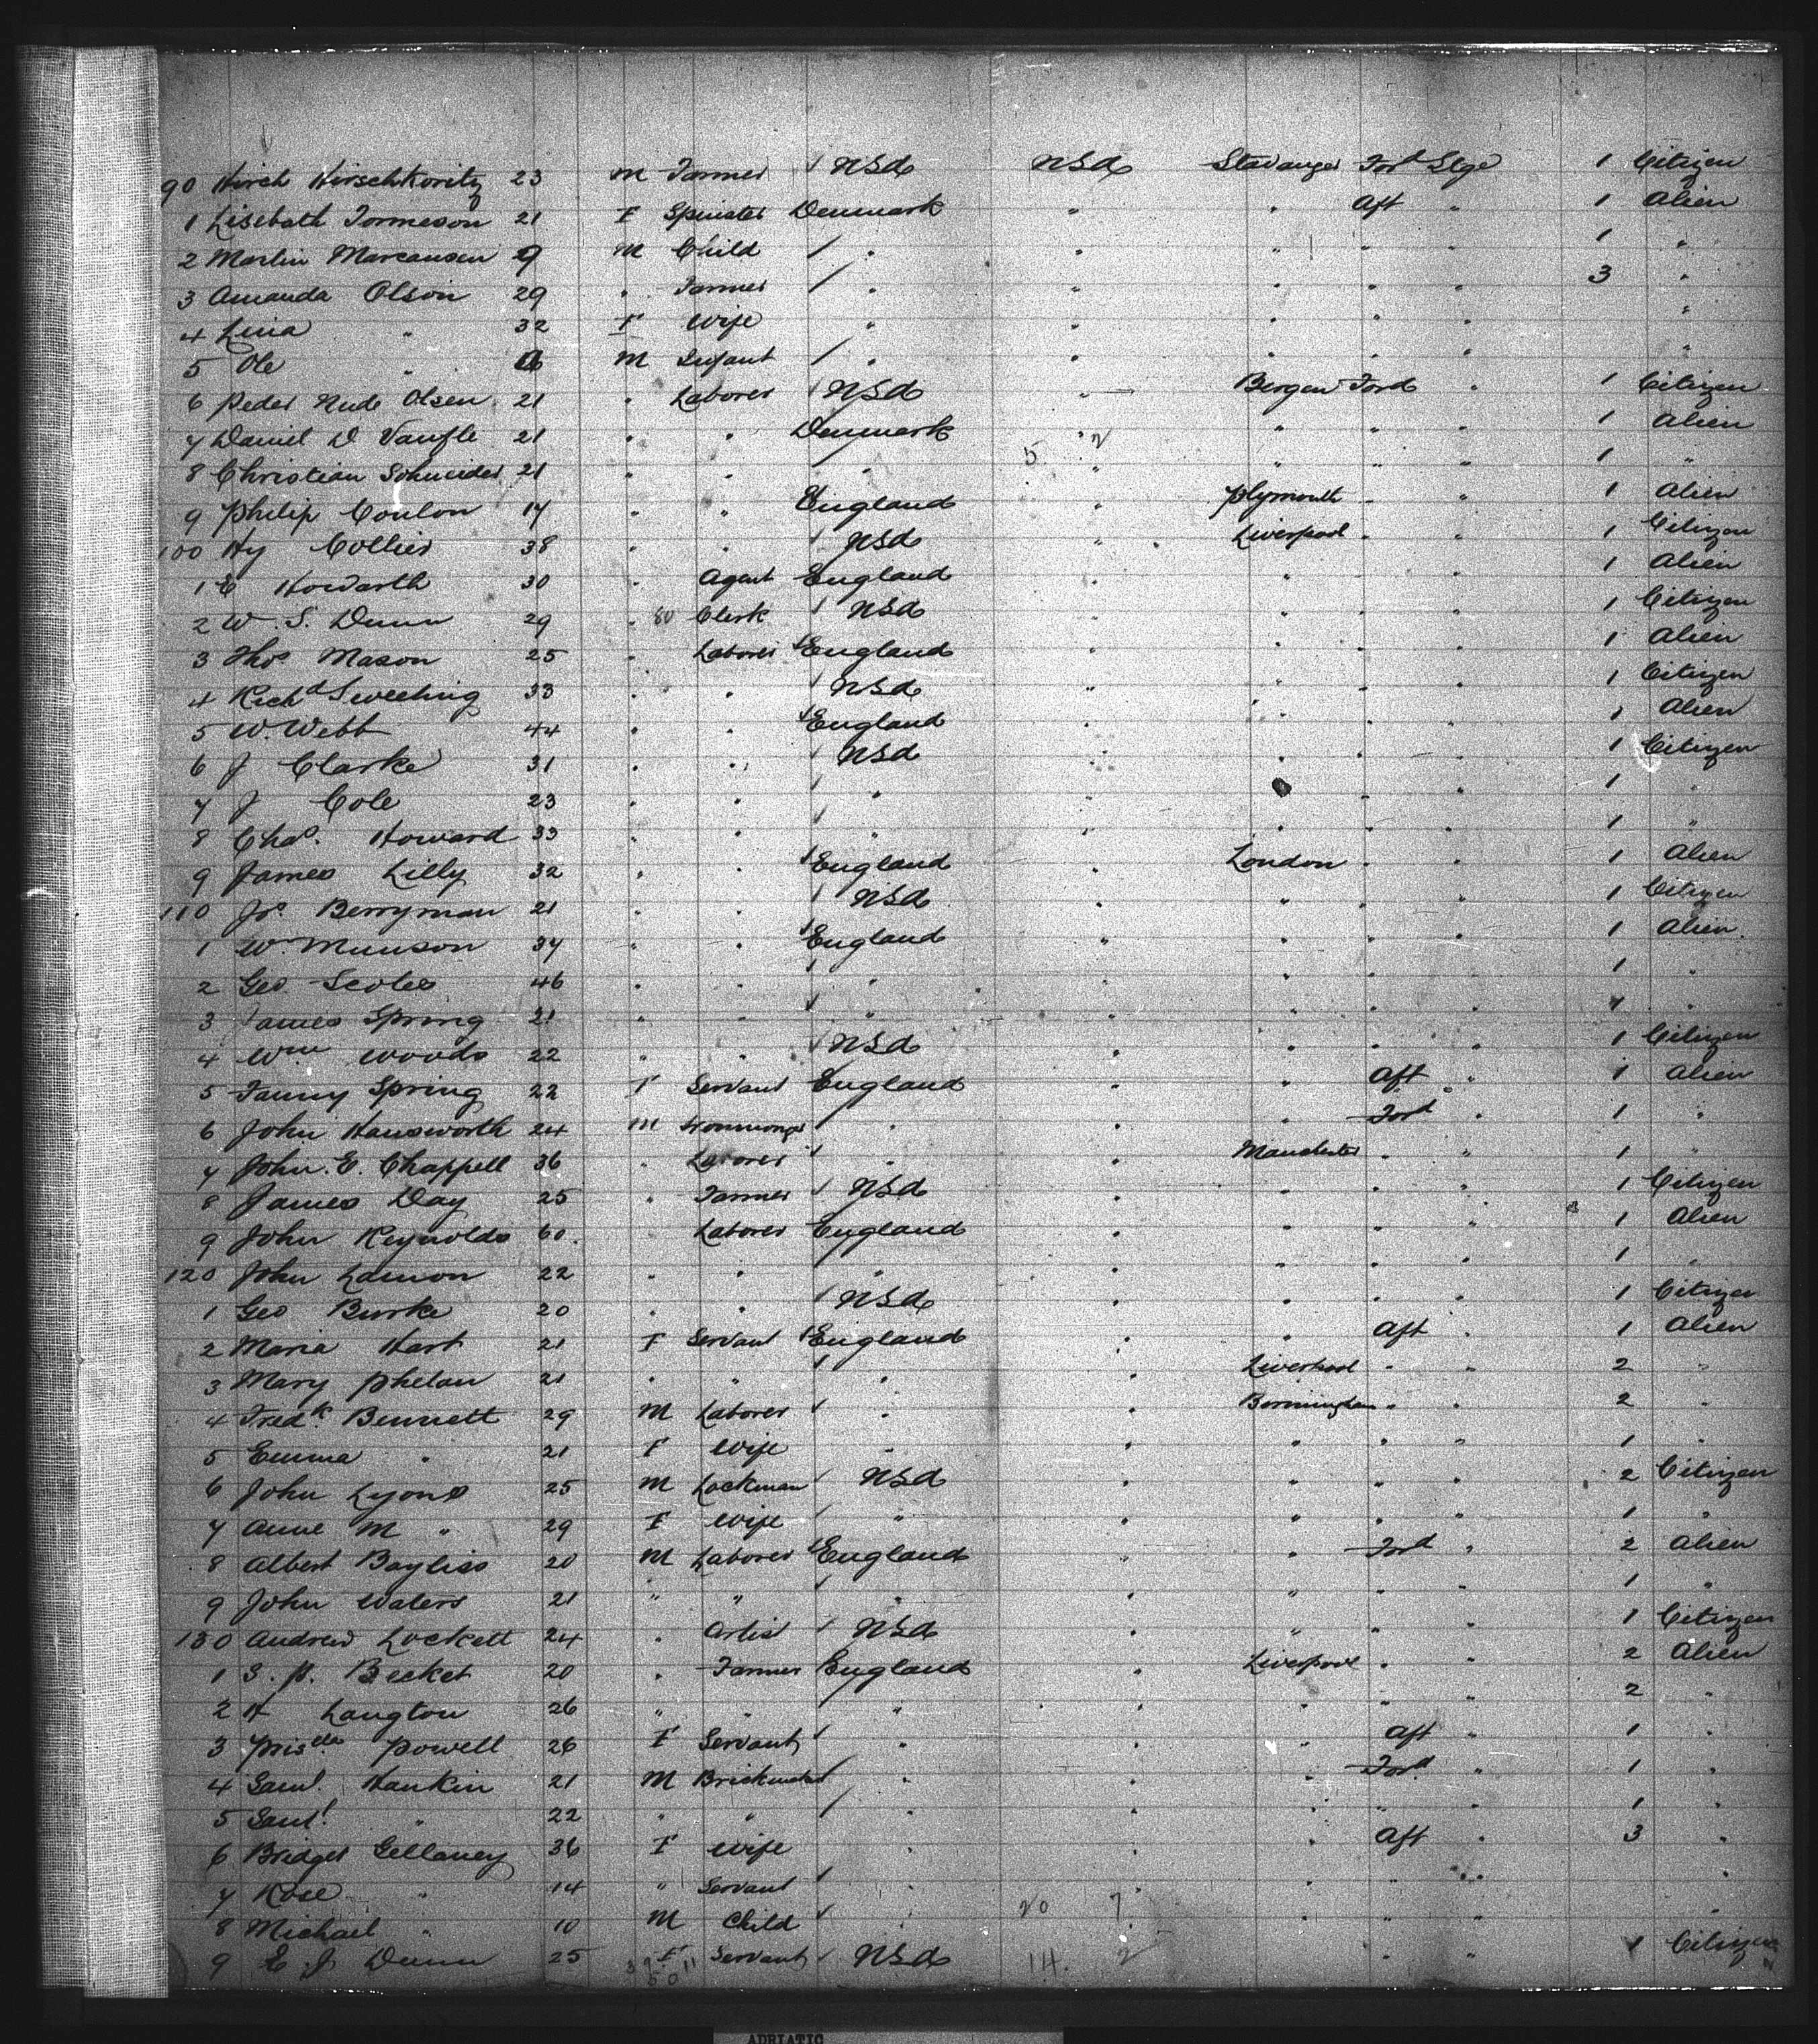 90 Hirch Hirschkovitz 23 M Farmer NSA NSA Stavanger Ford Stge 1 Citizen
1 Lisebath Tormeson 21 F Spinster Denmark " " Aft " 1 Alien
2 Martin Marcausen 9 M Child " " " " " 1 "
3 Amanda Olson 29 " Farmer " " " " " 3 "
4 Lina " 32 F Wife " " " " " "
5 Ole " M Infant " " " " " "
6 Peder Nude Olsen 21 " Laborer NSA " Bergen Ford " 1 Citizen
7 Daniel D 21 " " Denmark " " " " 1 Alien
8 Christian Schneider 21 " " " 5 2 " " " " 1 "
9 Philip Coulon 17 " " England " Plymouth " " 1 Alien
100 Hy Collier 38 " " NSA " Liverpool " " 1 Citizen
1 E Howarth 30 " Agent England " " " " 1 Alien
2 W. S. Dunn 29 " 80 Clerk NSA " " " " 1 Citizen
3 Thos Mason 25 " Laborer England " " " " 1 Alien
4 Richd Sweeting 33 " " NSA " " " " 1 Citizen
5 W. Webb 44 " " England " " " " 1 Alien
6 J Clarke 31 " " NSA " " " " 1 Citizen
7 J Cole 23 " " " " " " " 1 "
8 Chas. Howard 33 " " " " " " " 1 "
9 James Lilly 32 " " England " London " " 1 Alien
110 Jos. Berryman 21 " " NSA " " " " 1 Citizen
1 Wm Munson 37 " " England " " " " 1 Alien
2 Geo Scoles 46 " " " " " " " 1 "
3 James Spring 21 " " " " " " " 1 "
4 Wm Woods 22 " " NSA " " " " 1 Citizen
5 Fanny Spring 22 F Servant England " " Aft " 1 Alien
6 John Hansworth 24 M Ironmonger " " " Ford " 1 "
7 John. E. Chappell 36 " Laborer " " Manchester " " 1 "
8 James Day 25 " Farmer NSA " " " " 1 Citizen
9 John Reynolds 60. Laborer England " " " " 1 Alien
120 John Lamon 22 " " " " " " " 1 "
1 Geo Burke 20 " " NSA " " " " 1 Citizen
2 Maria Hart 21 F Servant England " " Aft " 1 Alien
3 Mary Phelan 21 " " " " Liverpool " " 2 "
4 Fredk Bennett 29 M Laborer " " Bermingham " " 2 "
5 Emma " 21 F Wife " " " " " 1 "
6 John Lyons 25 M Lockman NSA " " " " 2 Citizen
7 Anne M " 29 F Wife " " " " " 1 "
8 Albert Bayliss 20 M Laborer England " " Ford " 2 Alien
9 John Waters 21 " " " " " " " 1 "
130 Andrew Lockett 24 " Artist NSA " " " " 1 Citizen
1 S. P. Becket 20 " Farmer England " Liverpool " " 2 Alien
2 H Langton 26 " " " " " " " 2 "
3 Prisclla Powell 26 F Servant " " " Aft " 1 "
4 Saml. Hankin 21 M " " " Ford " 1 "
5 Saml. " 22 " " " " " " " 1 "
6 Bridget Gellaney 36 F Wife " " " Aft " 3 "
7 Rose " 14 " Servant " " " " " "
8 Michael " 10 M Child " 20 7 " " " "
9 E. J Dunn 25 F Servant NSA 14. 2 " " 1 Citizen
ADRIATIC